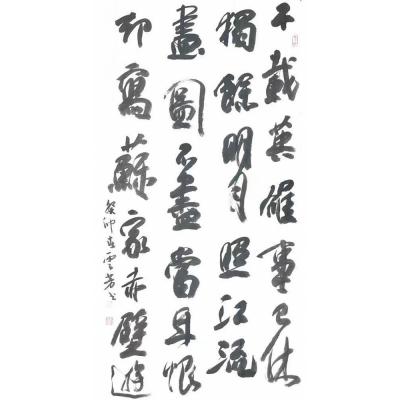 千載英雄事已休
獨餘明月照江流
畫圖不盡當年恨
却寫蘇家赤壁遊
癸卯春雲